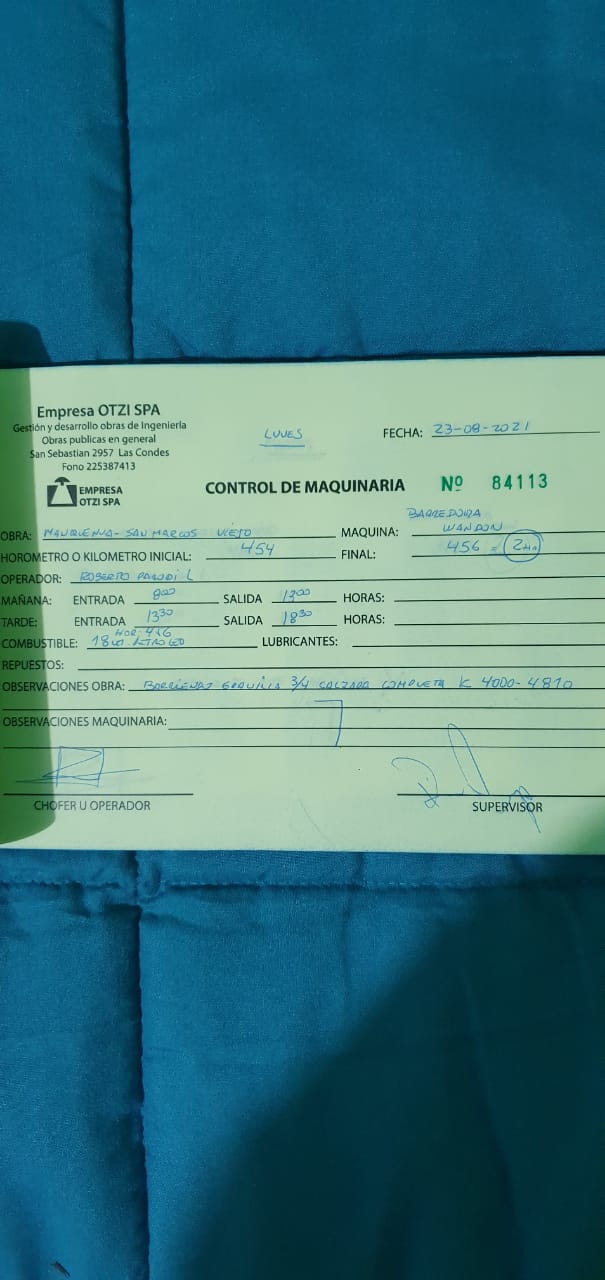 Empresa OTZI SPA
Gestión y desarrollo obras de Ingeniería
Obras publicas en general
San Sebastian 2957 Las Condes
Fono 225387413
EMPRESA
OTZI SPA
LUNES
FECHA: 23-08-2021
CONTROL DE MAQUINARIA Nº 84113
OBRA: MAUQUENVA-SAN MARCOS VIEJO MAQUINA: BARREDORA
HOROMETRO O KILOMETRO INICIAL: 454 FINAL: 456 =
OPERADOR: ROBERTO L
MAÑANA: ENTRADA 8:00 SALIDA 13:00 HORAS:
TARDE: ENTRADA 13:30 SALIDA 18:30 HORAS:
HOR:
COMBUSTIBLE: 18 LTS. PETROLEO LUBRICANTES:
REPUESTOS:
OBSERVACIONES OBRA: BARRIENDO 3/4 CALZADA COMPLETA K 4000-4810
OBSERVACIONES MAQUINARIA:
CHOFER U OPERADOR SUPERVISOR